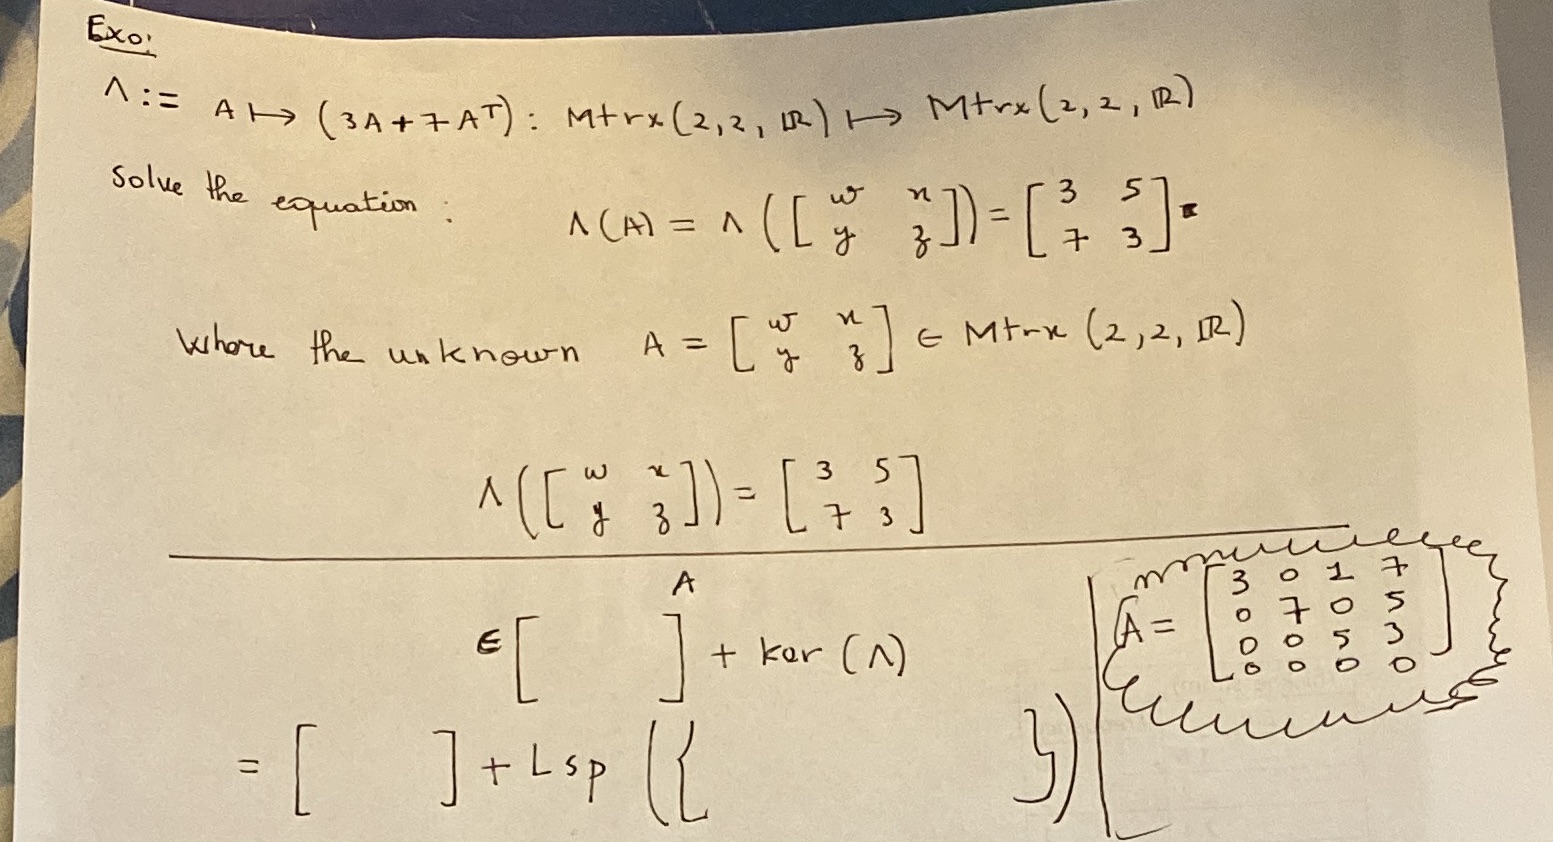 Exo:
Λ := A ↦ (3A + 7Aᵀ) : Mtrx(2,2, ℝ) ↦ Mtrx(2,2, ℝ)
Solve the equation : Λ(A) = Λ([w x; y z]) = [3 5; 7 3].
Where the unknown A = [w x; y z] ∈ Mtrx (2,2, ℝ)
Λ([w x; y z]) = [3 5; 7 3]
A
∈ [ ] + ker (Λ)
= [ ] + Lsp ({ })
A = [3 0 1 7; 0 7 0 5; 0 0 5 3; 0 0 0 0]